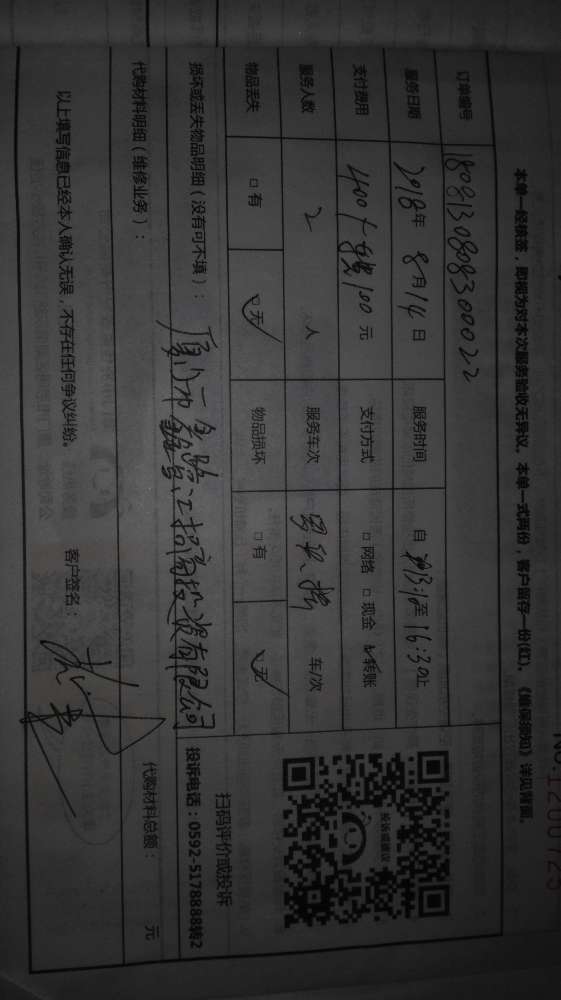 NO.1200725
本单一经核签，即视为对本次服务验收无异议。本单一式两份，客户留存一份(红)。《维保须知》详见背面。
订单编号 180813080830022
服务日期 2018年 8月14日 服务时间 自 至16:30止
支付费用 400+ 100 元 支付方式 □网络 □现金 ☑转账
服务人数 2 人 服务车次 车/次
物品丢失 □有 ☑无 物品损坏 □有 ☑无
投诉或建议
扫码评价或投诉
投诉电话：0592-5178888转2
损坏或丢失物品明细（没有可不填）：
厦门市 招商投资有限公司
代购材料明细（维修业务）：
代购材料总额： 元
以上填写信息已经本人确认无误，不存在任何争议纠纷。
客户签名：